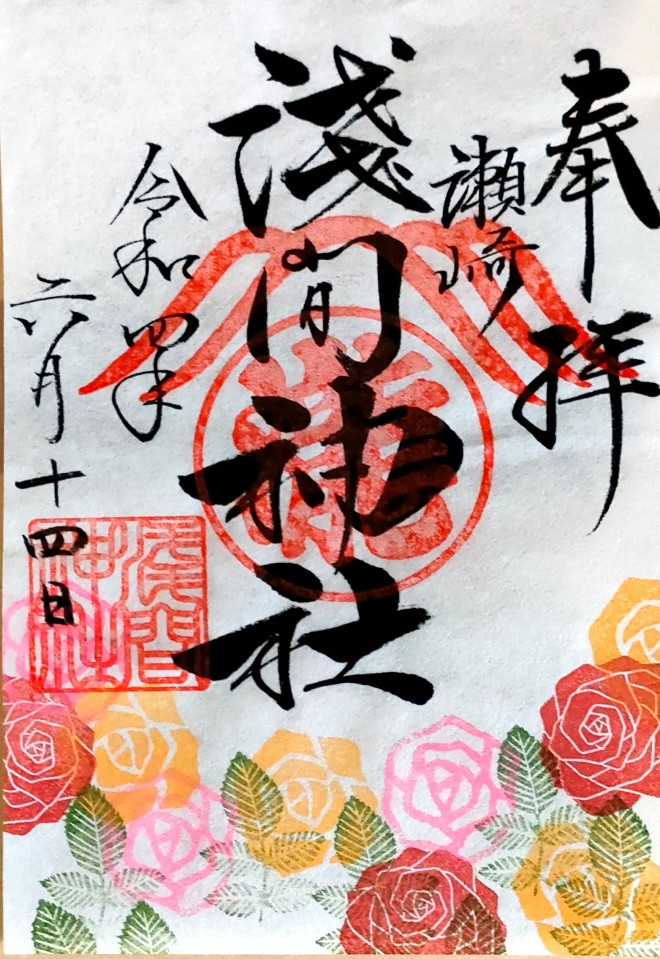 奉拝
瀬崎
浅間神社
令和四年
六月十四日
浅間
神社